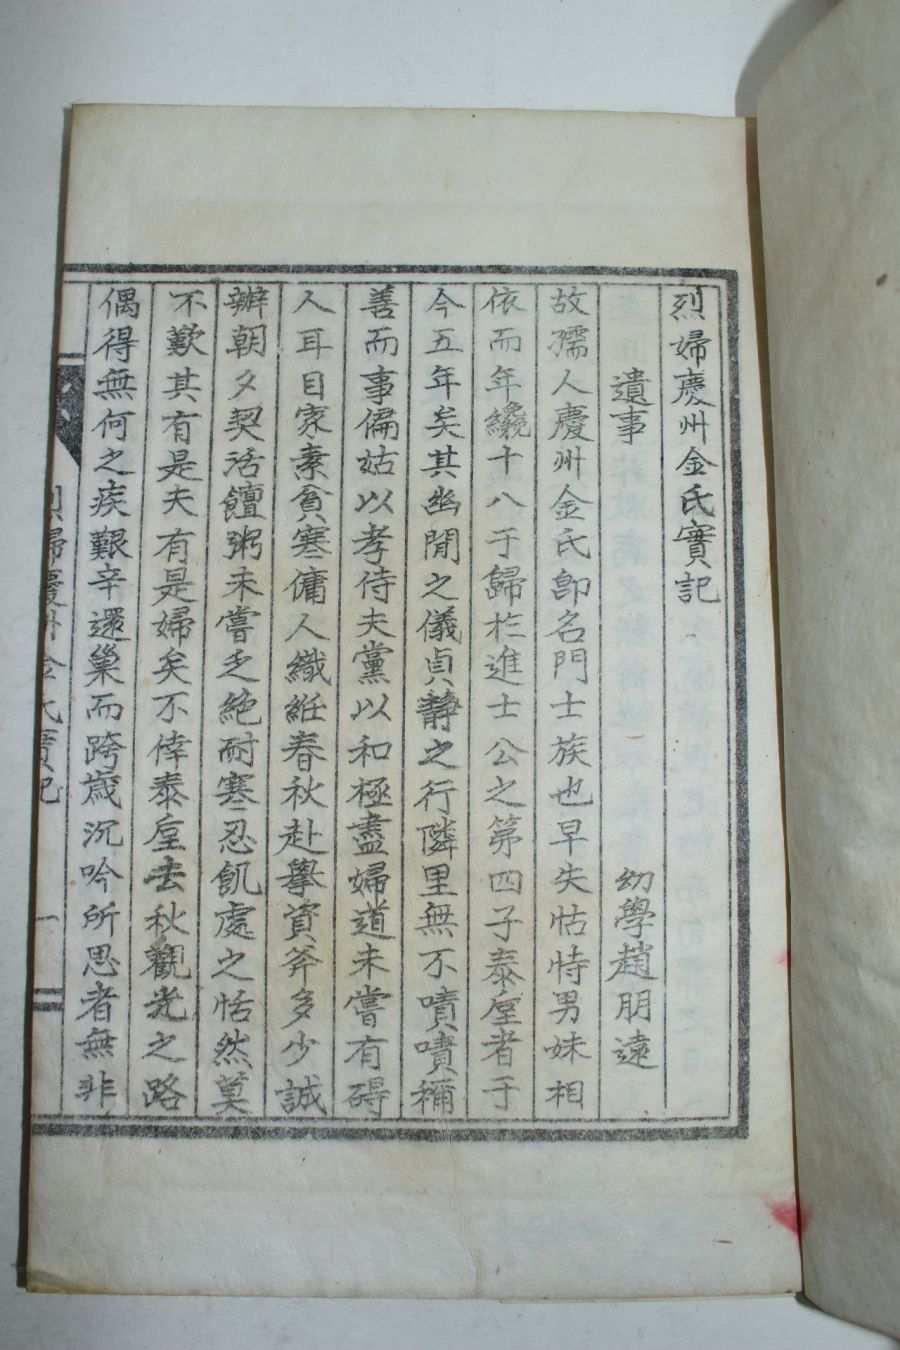 烈婦慶州金氏實記
遺事 幼學趙朋遠
故孺人慶州金氏卽名門士族也早失怙恃男妹相
依而年纔十八于歸於進士公之第四子泰垕者于
今五年矣其幽閒之儀貞靜之行隣里無不嘖嘖稱
善而事偏姑以孝侍夫黨以和極盡婦道未嘗有碍
人耳目家素貧寒傭人織紝春秋赴擧資斧多少誠
辦朝夕契活饘粥未嘗乏絶耐寒忍飢處之恬然莫
不歎其有是夫有是婦矣不倖泰垕去秋觀光之路
偶得無何之疾艱辛還巢而跨歲沉吟所思者無非
烈婦慶州金氏實記 一